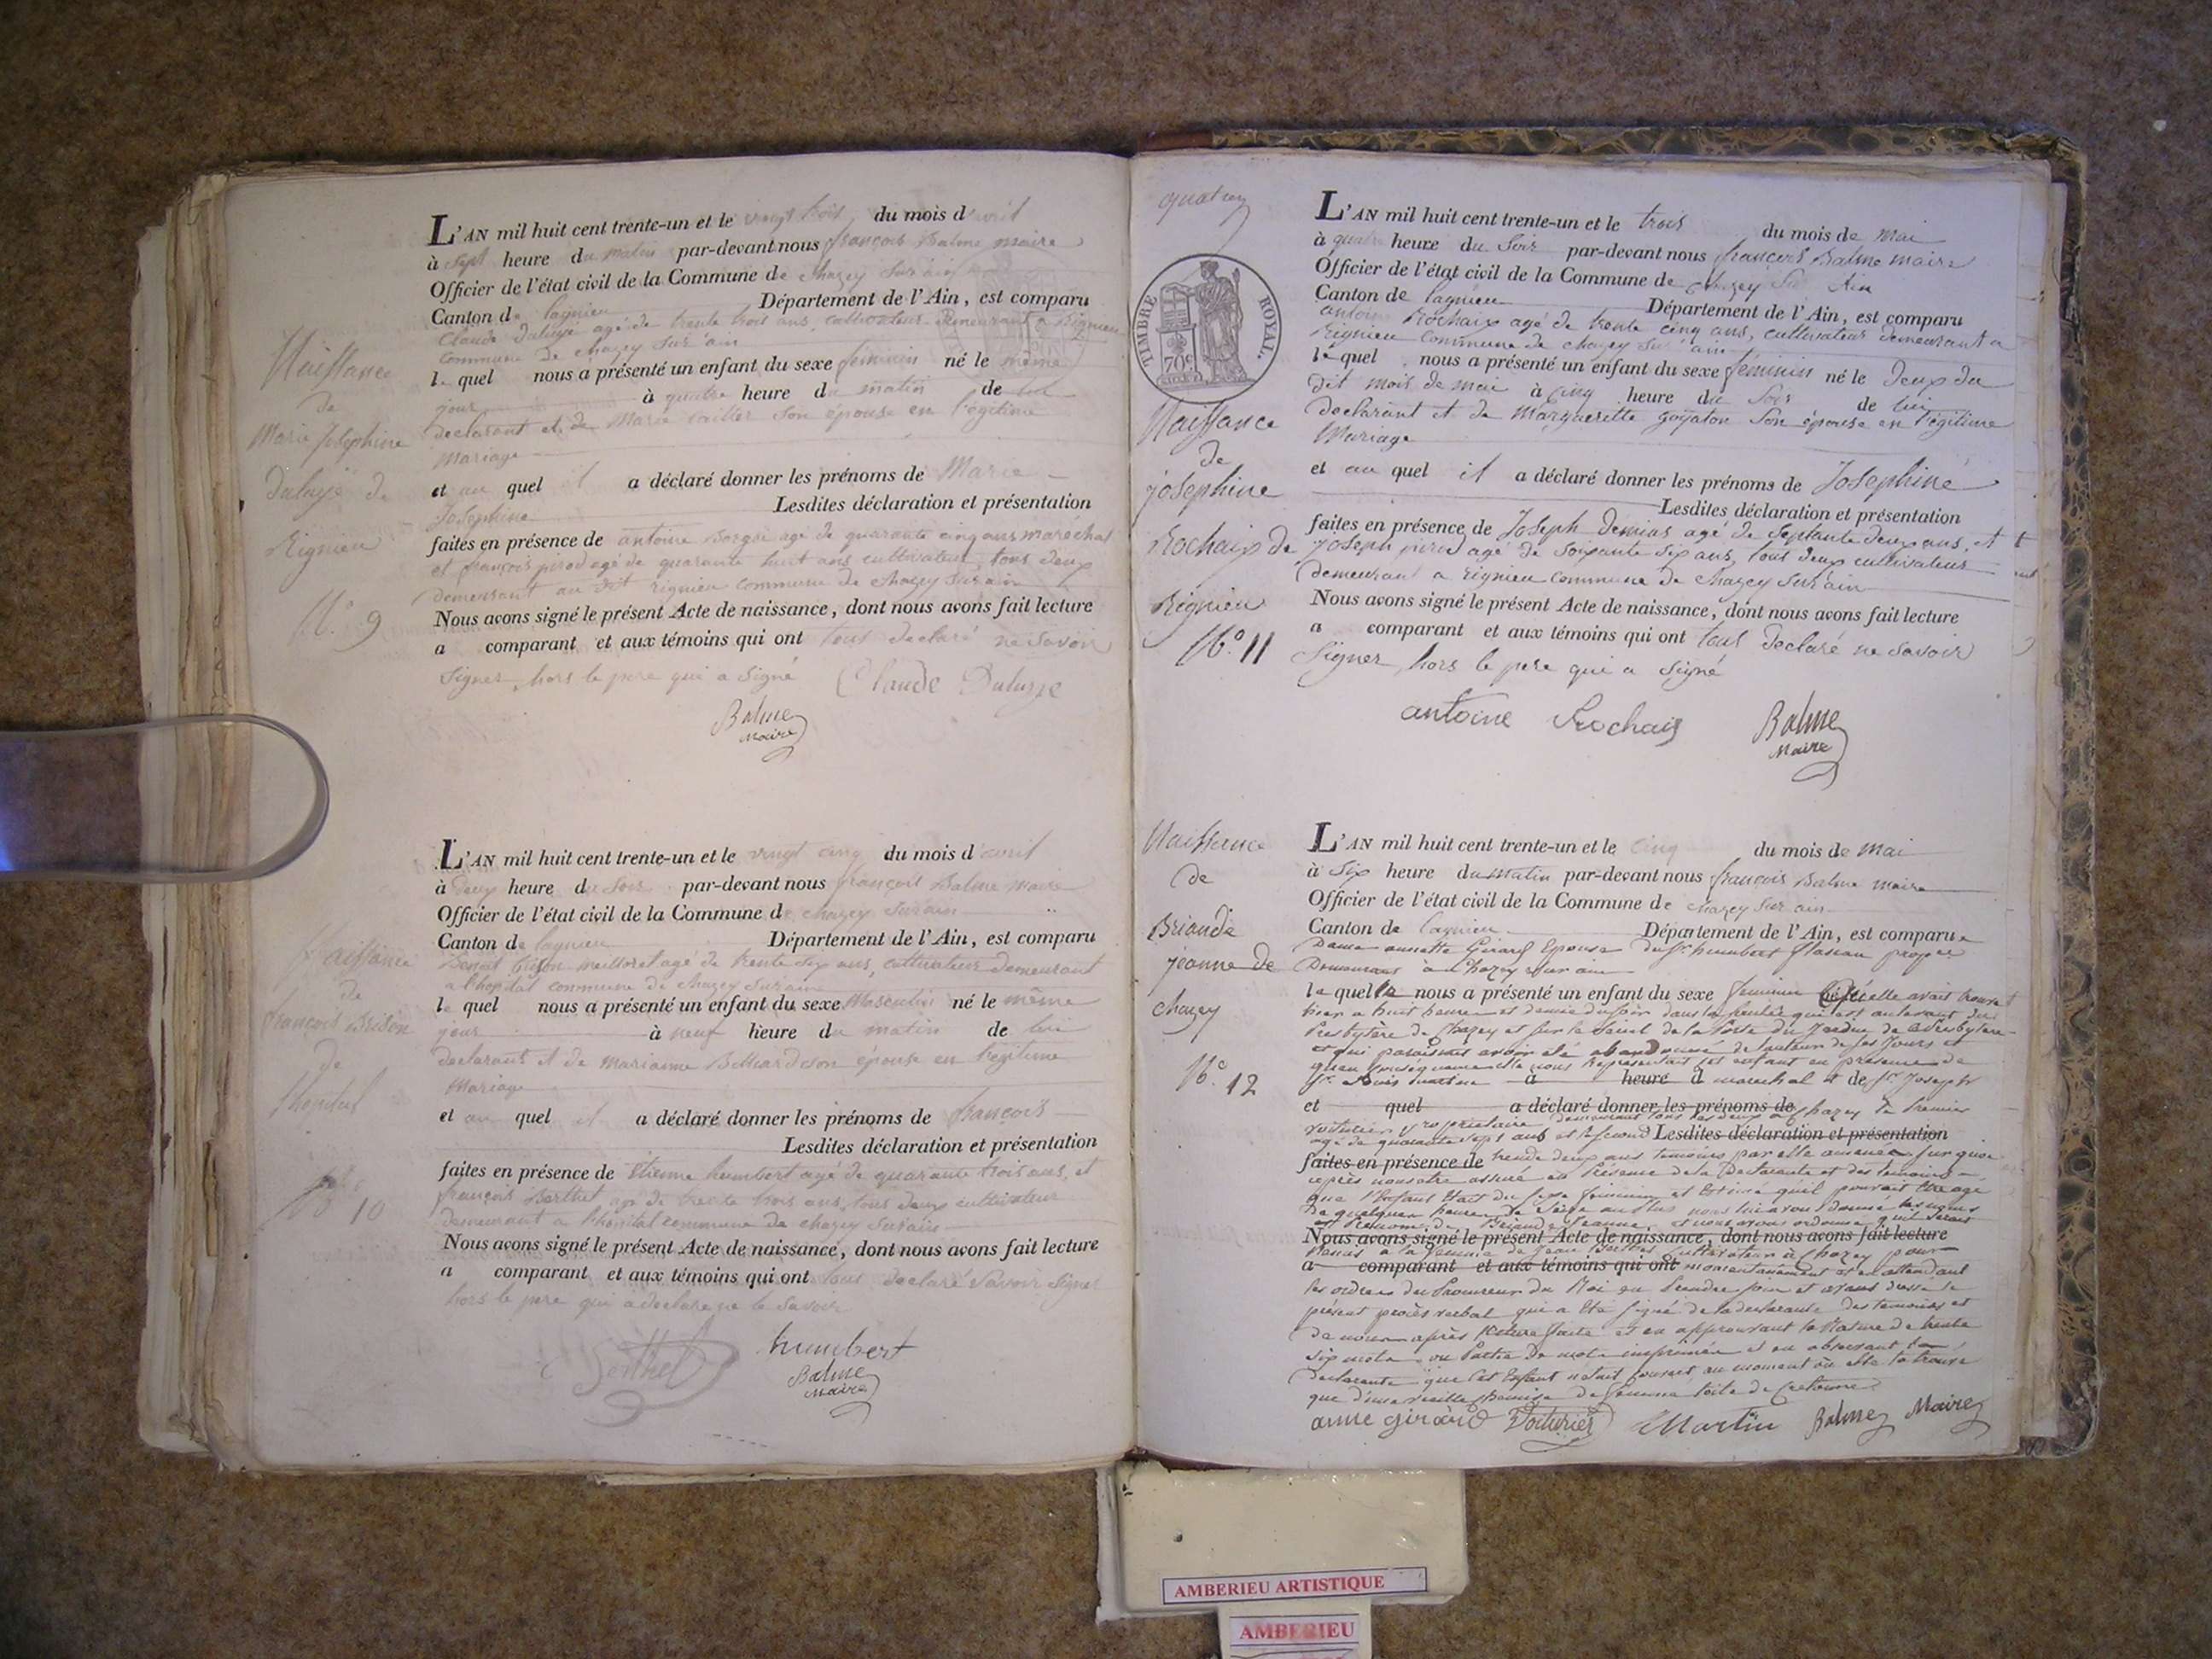 Naissance
de
Marie Joséphine
de
Rignieu
N.° 9
L'AN mil huit cent trente-un et le vingt trois du mois d'avril
à sept heure du matin par-devant nous françois Balme maire
Officier de l'état civil de la Commune de chazey sur ain
Canton de lagnieu Département de l'Ain, est comparu
Claude agé de trente trois ans, cultivateur demeurant a Rignieu
commune de chazey sur ain
le quel nous a présenté un enfant du sexe féminin né le même
jour à quatre heure du matin de lui
declarant et de Marie son épouse en légitime
mariage
et au quel il a déclaré donner les prénoms de Marie
Josephine Lesdites déclaration et présentation
faites en présence de antoine agé de quarante cinq ans maréchal
et françois pirod agé de quarante huit ans cultivateur, tous deux
demeurant au dit rignieu commune de chazey sur ain
Nous avons signé le présent Acte de naissance, dont nous avons fait lecture
a comparant et aux témoins qui ont tous declaré ne savoir
signer, hors le pere qui a signé Claude
Balme
Maire
Naissance
de
françois Brison
de
l'hopital
N° 10
L'AN mil huit cent trente-un et le vingt cinq du mois d'avril
à deux heure du soir par-devant nous françois Balme maire
Officier de l'état civil de la Commune de chazey sur ain
Canton de lagnieu Département de l'Ain, est comparu
Benoit agé de trente six ans, cultivateur demeurant
a l'hopital commune de chazey sur ain
le quel nous a présenté un enfant du sexe Masculin né le même
jour à neuf heure du matin de lui
declarant et de Marianne son épouse en légitime
Mariage
et au quel il a déclaré donner les prénoms de françois
Lesdites déclaration et présentation
faites en présence de Etienne humbert agé de quarante trois ans, et
françois Berthet, agé de trente trois ans, tous deux cultivateur
demeurant a l'hopital commune de chazey sur ain
Nous avons signé le présent Acte de naissance, dont nous avons fait lecture
a comparant et aux témoins qui ont tous declaré savoir signer
hors le pere qui a declare ne le savoir
Berthet humbert
Balme
Maire
quatre
TIMBRE ROYAL.
70c
Naissance
de
joSephine
Rochaix de
Rignieu
N° 11
L'AN mil huit cent trente-un et le trois du mois de mai
à quatre heure du soir par-devant nous françois Balme maire
Officier de l'état civil de la Commune de chazey sur Ain
Canton de lagnieu Département de l'Ain, est comparu
antoine Rochaix agé de trente cinq ans, cultivateur demeurant a
Rignieu commune de chazey sur ain
le quel nous a présenté un enfant du sexe féminin né le deux du
dit mois de mai à cinq heure du soir de lui
declarant et de Margueritte goyaton son épouse en légitime
Mariage
et au quel il a déclaré donner les prénoms de JoSephine
Lesdites déclaration et présentation
faites en présence de JoSeph agé de septante deux ans, et
JoSeph pirod agé de soixante six ans, tous deux cultivateur
demeurant a rignieu commune de chazey sur ain
Nous avons signé le présent Acte de naissance, dont nous avons fait lecture
a comparant et aux témoins qui ont tous declaré ne savoir
signer, hors le pere qui a signé
antoine Rochaix Balme
Maire
Naissance
de
Briande
jeanne de
chazey
N° 12
L'AN mil huit cent trente-un et le cinq du mois de mai
à six heure du matin par-devant nous françois Balme maire
Officier de l'état civil de la Commune de chazey sur ain
Canton de lagnieu Département de l'Ain, est comparue
Dame annette Girard Epouse du Sr humbert
Demeurant à Chazey sur ain
la quelle nous a présenté un enfant du sexe feminin elle avait trouvé
hier a huit heures et demie du soir dans
Presbytère de Chazey et sur le seuil de la Porte du Jardin de Presbytère
et qui paraissait avoir été abandonné de l'auteur de ses Jours et
nous Representait cet enfant en présence de
à heure d marechal et de Sr Joseph
et quel a déclaré donner les prénoms de
voiturier Propriétaire demeurant tous les deux à Chazey le Premier
agé de quarante sept ans et le second Lesdites déclaration et présentation
faites en présence de trente deux ans temoins par elle amenés sur quoi
après nous etre assuré en Présence de la Declarante et des temoins
que l'Enfant Etait du sexe feminin et Estimé qu'il pouvait être agé
de quelques heures nous lui avons donné les noms
et Prenoms de Briande Jeanne, et nous avons ordonné qu'il serait
Nous avons signé le présent Acte de naissance, dont nous avons fait lecture
Remis a la femme de Jean cultivateur à Chazey pour
a comparant et aux témoins qui ont momentanement et en attendant
les ordres du Procureur du Roi en Prendre soin et avons dressé le
présent procès verbal qui a été signé de la declarante des temoins et
de nous après lecture faite et en approuvant la Rature de trente
six mots ou Partie de mots imprimés et en observant la
Declarante que cet Enfant n'etait couvert au moment où elle la trouvé
que d'une vieille chemise de femme toile de Cretonne
anne girard Voiturier Martin Balme Maire
AMBERIEU ARTISTIQUE
AMBERIEU